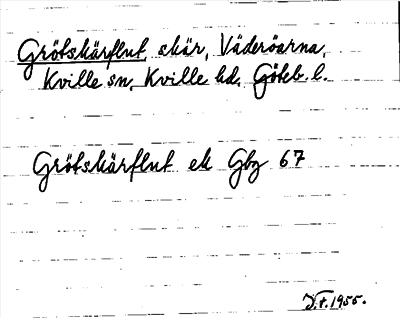 Grötskärflut, skär, Väderöarna,
Kville sn, Kville hd, Göteb. l.
Grötskärflut ek Gbg 67
V.t. 1955.